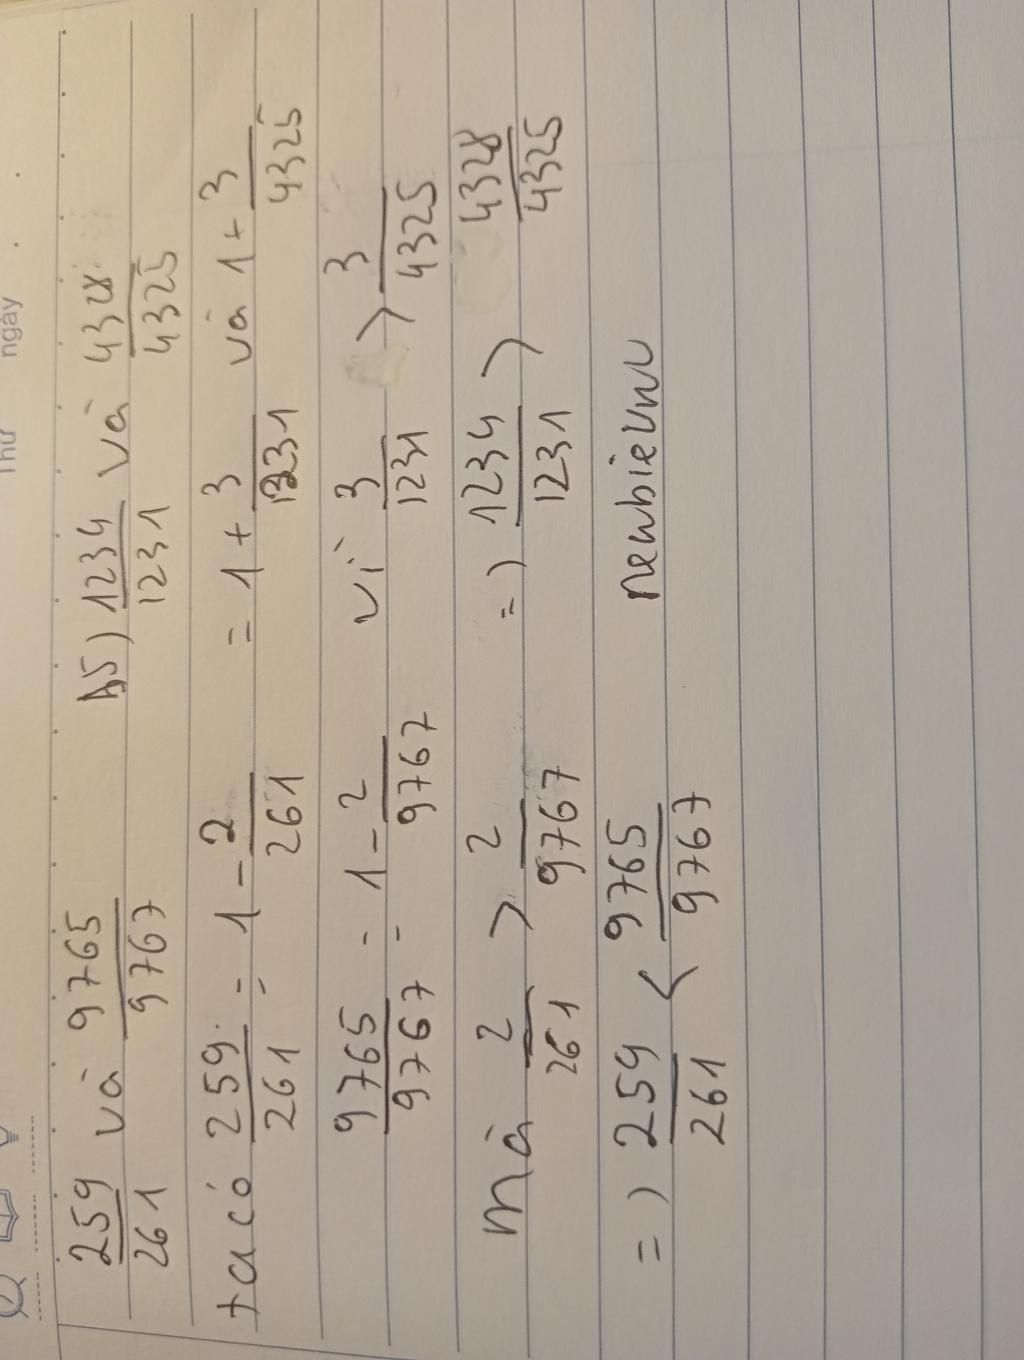 Thứ ngày
259/261 và 9765/9767
ta có 259/261 = 1 - 2/261
9765/9767 = 1 - 2/9767
mà 2/261 > 2/9767
=) 259/261 < 9765/9767
b5) 1234/1231 và 4328/4325
= 1 + 3/1231 và 1 + 3/4325
vì 3/1231 > 3/4325
=) 1234/1231 > 4328/4325
newbievnu